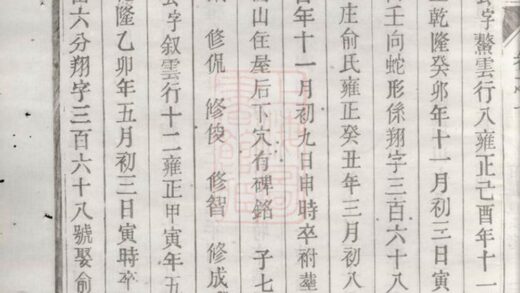 字鰲雲行八雍正己酉年十一
乾隆癸卯年十一月初三日寅
壬向蛇形係翔字三百六十八
庄俞氏雍正癸丑年三月初八
年十一月初九日申時卒祔葬
山庄屋后下穴有碑銘 子七
修侃 修俊 修智 修成
字叙雲行十二雍正甲寅年五
乾隆乙卯年五月初三日寅時卒
六分翔字三百六十八號娶俞